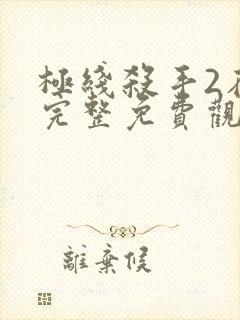 極綫殺手2
完整免費觀
離棄候